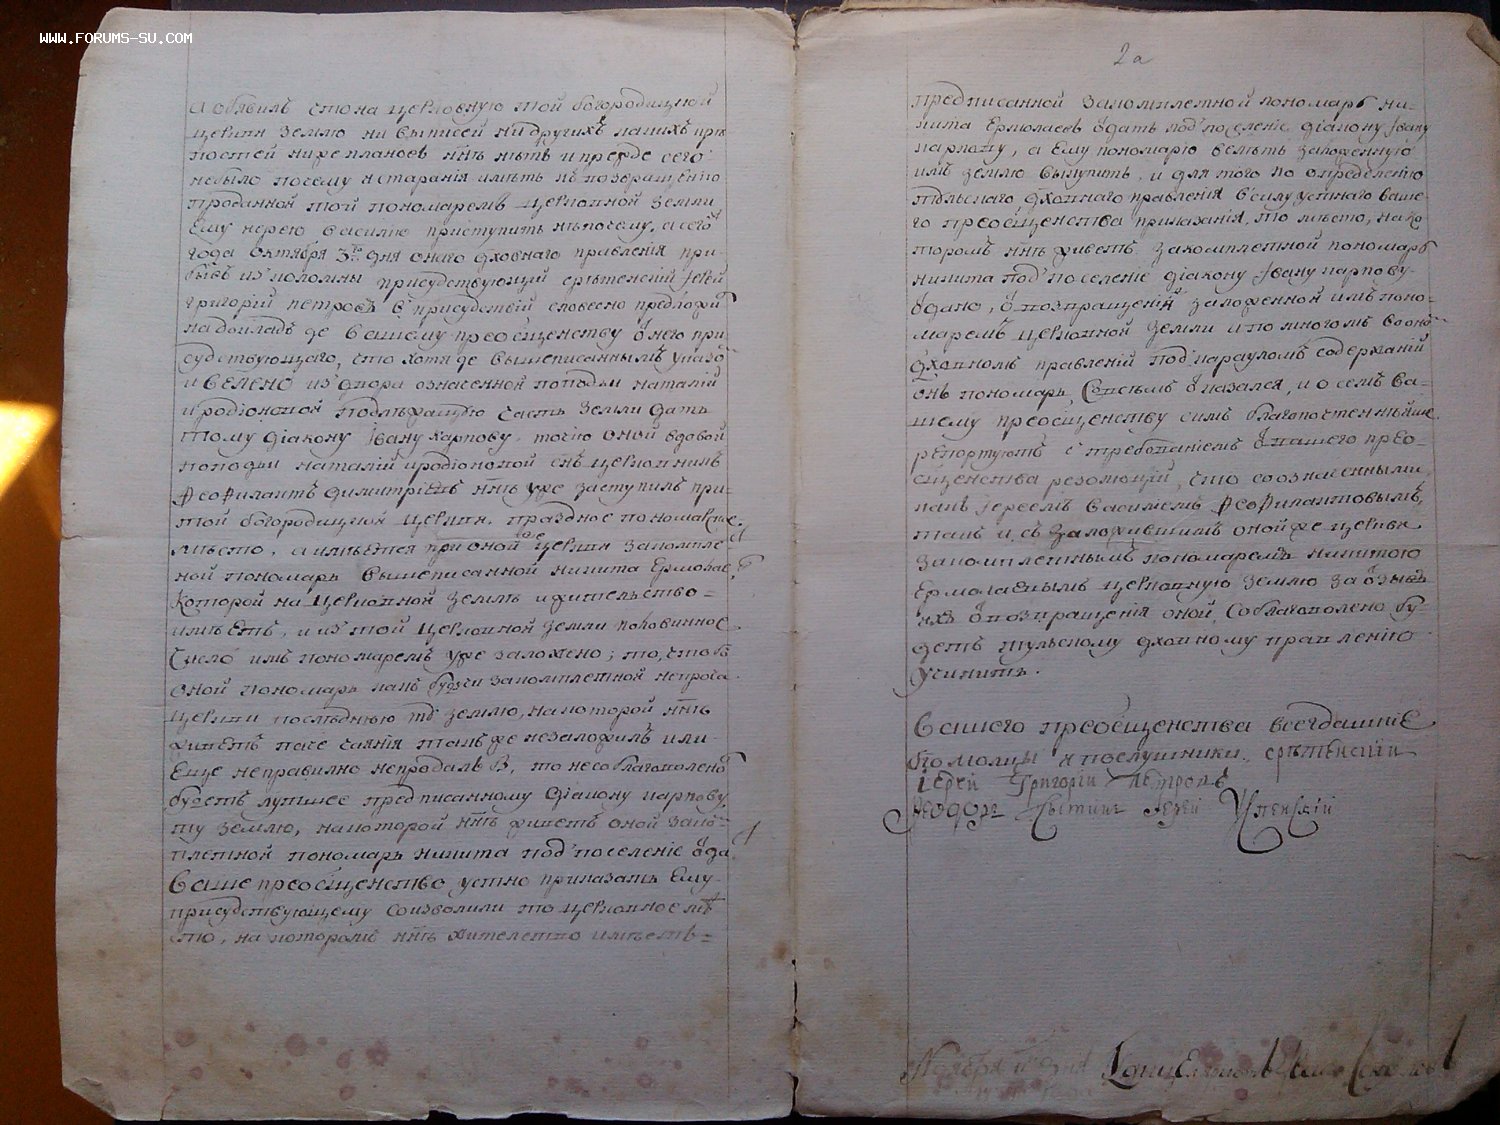 WWW.FORUMS-SU.COM
а обявилъ что на церковную той богородицкой
церкви землю ни выписей ни другихъ какихъ крѣ
постей ниже плановъ ннѣ нѣтъ и прежде сего
небыло почему и старанія имѣть къ возвращенію
проданной той пономаремъ церковной земли
ему иерею василию приступить нѣпочему, а сего
года октября 3го дня онаго дховнаго правления при
бывъ из коломны присудствующий срѣтенский Iерей
григорий петровъ в присудствій словесно предложил
надокладъ де вашему преосщенству от него при
судствующаго, что хотя де вышеписаннымъ указом
и велено из двора означенной попадьи наталии
иродионовой подлѣжащую часть земли отдать
тому діакону Iвану карпову, точию оной вдовой
попадьи наталии иродионовой снъ церковникъ
Феофилактъ димитриевъ ннѣ уже заступилъ при
той богородицкой церкви праздное пономарское
мѣсто, а имѣется при оной церкви закомпле
ной пономарь вышеписанной никита Ермолаев
которой на церковной землѣ и жительство
имѣетъ, и из той церковной земли половинное
число имъ пономаремъ уже заложено; то, чтобъ
оной пономарь какъ будучи закомплетной непри
церкви послѣднюю ту землю, на которой ннѣ
живетъ паче чаяния также незаложилъ или
Еще неправилно непродалъ б, то несоблаговолено
будетъ лутшее предписанному діакону карпову
ту землю, на которой ннѣ живетъ оной заком
плетной пономарь никита под поселение отда
Ваше преосщенство устно приказать Ему
присудствующему соизволили то церковное мѣ
сто, на котором ннѣ жителство имѣетъ
2а
предписанной закомплетной пономарь ни-
кита Ермолаевъ отдать под поселение діакону Iвану
карпову, а Ему пономарю велѣть заложенную
имъ землю выкупить, и для того по определению
тульскаго дховнаго правления в силу устнаго ваше
го преосщенства приказания, то мѣсто, на ко
торомъ ннѣ живетъ закомплетной пономарь
никита под поселение діакону Iвану карпову
отдано, о возвращении заложенной имъ поно-
маремъ церковной земли и по многомъ в оном
дховномъ правлений под карауломъ содержаний
онъ пономарь Совсѣмъ отказался, и о семъ ва-
шему преосщенству симъ благопочтеннѣйше
репортуютъ с требованиемъ от вашего прео-
сщенства резолюций, что со означенными
какъ Iереемъ василиемъ Феофилактовымъ,
такъ и съ заложившимъ оной же церкви
закомплетнымъ пономаремъ никитою
Ермолаевымъ церковную землю за отзывъ
ихъ о возвращения оной, соблаговолено бу-
детъ тульскому дховному правлению
учинить.
Вашего преосщенства всегдашние
бгомолцы и послушники, срѣтенский
Iерей Григорий Петровъ
Феодоръ Iерей Успенский
Ноября дня Канцеляристъ